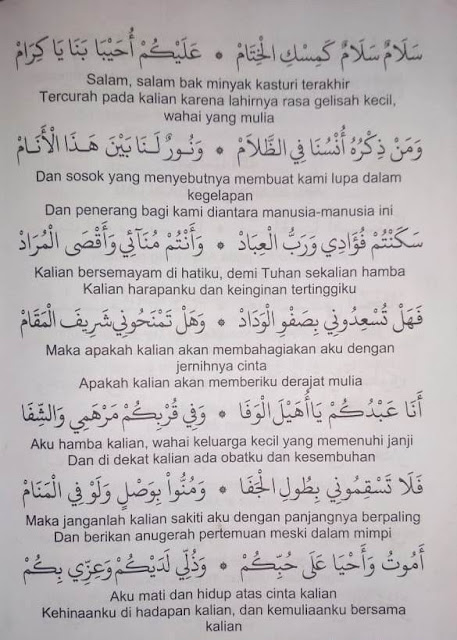 سَلَامٌ سَلَامٌ كَمِسْكِ الْخِتَامْ * عَلَيْكُمْ أُحَيْبَا بَنَا يَا كِرَامْ
Salam, salam bak minyak kasturi terakhir
Tercurah pada kalian karena lahirnya rasa gelisah kecil,
wahai yang mulia
وَمَنْ ذِكْرُهُ أُنْسُنَا فِي الظَّلَامْ * وَنُورٌ لَنَا بَيْنَ هَذَا الْأَنَامْ
Dan sosok yang menyebutnya membuat kami lupa dalam
kegelapan
Dan penerang bagi kami diantara manusia-manusia ini
سَكَنْتُمْ فُؤَادِي وَرَبُّ الْعِبَادْ * وَأَنْتُمْ مُنَآئِي وَأَقْصَى الْمُرَادْ
Kalian bersemayam di hatiku, demi Tuhan sekalian hamba
Kalian harapanku dan keinginan tertinggiku
فَهَلْ تُسْعِدُونِي بِصَفْوِ الْوَدَادْ * وَهَلْ تَمْنَحُونِي شَرِيفَ الْمَقَامْ
Maka apakah kalian akan membahagiakan aku dengan
jernihnya cinta
Apakah kalian akan memberiku derajat mulia
أَنَا عَبْدُكُمْ يَاأُهَيْلَ الْوَفَا * وَفِي قُرْبِكُمْ مَرْهَمِي وَالشِّفَا
Aku hamba kalian, wahai keluarga kecil yang memenuhi janji
Dan di dekat kalian ada obatku dan kesembuhan
فَلَا تَسْقِمُونِي بِطُولِ الْجَفَا * وَمُنُّوا بِوَصْلٍ وَلَوْ فِي الْمَنَامْ
Maka janganlah kalian sakiti aku dengan panjangnya berpaling
Dan berikan anugerah pertemuan meski dalam mimpi
أَمُوتُ وَأَحْيَا عَلَى حُبِّكُمْ * وَذُلِّي لَدَيْكُمْ وَعِزِّي بِكُمْ
Aku mati dan hidup atas cinta kalian
Kehinaanku di hadapan kalian, dan kemuliaanku bersama
kalian